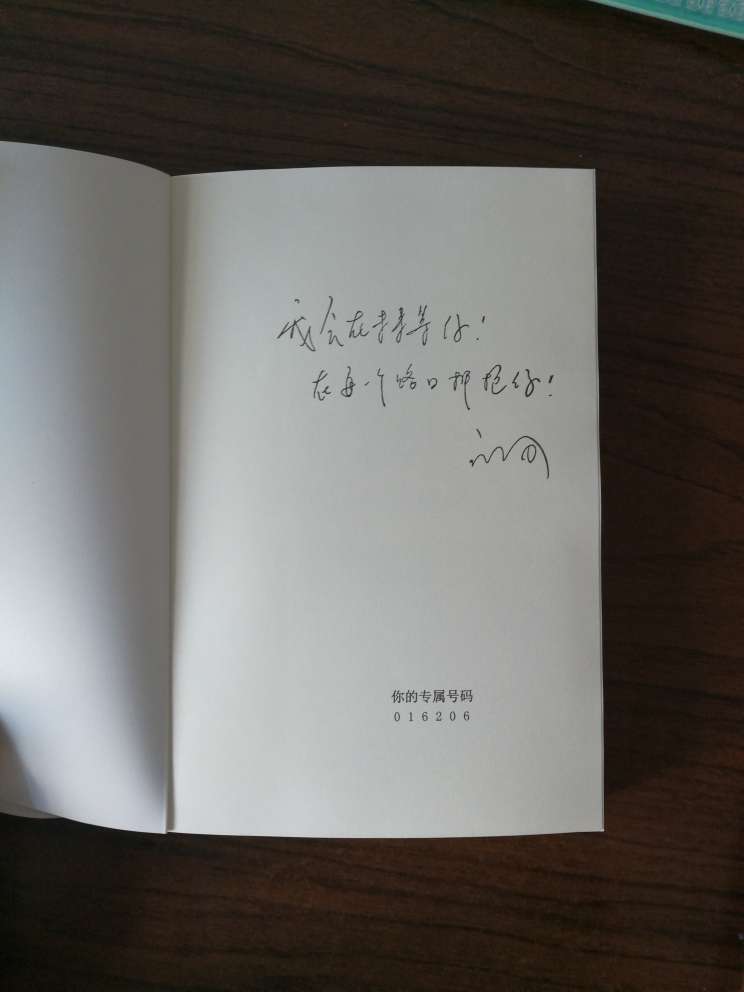 我会在未来等你！
在每一个路口都抱你！
你的专属号码
016206